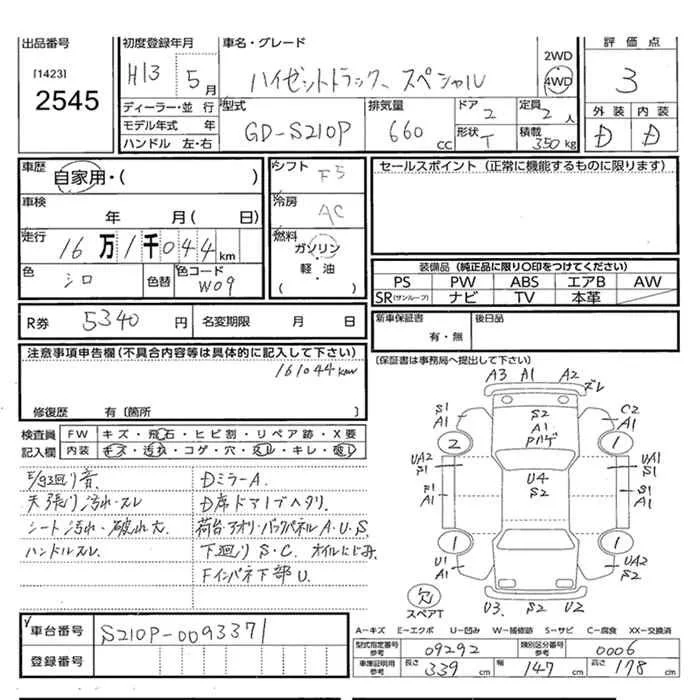 出品番号
[1423]
2545
初度登録年月
H13 5月
車名・グレード
ハイゼットトラック、スペシャル
2WD
4WD
評価点
3
外装 内装
D D
ディーラー・並行
モデル年式 年
ハンドル 左・右
型式
GD-S210P
排気量
660cc
ドア 2
形状 T
定員 2人
積載 350kg
車歴
自家用・( )
車検
年 月( 日)
走行
16万1千044km
色
シロ
色替
色コード
W09
シフト
F5
冷房
AC
燃料
ガソリン
・
軽・油
( )
セールスポイント(正常に機能するものに限ります)
装備品(純正品に限り〇印をつけてください)
PS PW ABS エアB AW
SR(サンルーフ) ナビ TV 本革
R券 5340円 名変期限 月 日
新車保証書
有・無
後日品
(保証書は事務局へ提出して下さい)
注意事項申告欄(不具合内容等は具体的に記入して下さい)
161044km
修復歴 有〔箇所 〕
検査員
記入欄
FW キズ・飛石・ヒビ割・リペア跡・X要
内装 キズ・汚れ・コゲ・穴・スレ・キレ・破レ
天張り汚れ・スレ
シート汚れ・破れ大
ハンドルスレ
DミラーA.
荷台・アオリ・バックパネルA.U.S.
下廻りS・C.オイルにじみ
Fインパネ下部U.
A3 A1 A2
ズレ
S1
A1
C2
A1
S2
A1
Pハゲ
2
1
UA2
S1
UA1
S1
U4
S2
F1
A1
S1
A1
1
1
U1
A1
UA2
S2
欠
スペアT
U3 S2 U2
車台番号
S210P-0093371
登録番号
A-キズ E-エクボ U-凹み W-補修跡 S-サビ C-腐食 XX-交換済
型式指定番号
参考
09292
類別区分番号
参考
0006
車庫証明用
参考
長さ 339cm 幅 147cm 高さ 178cm